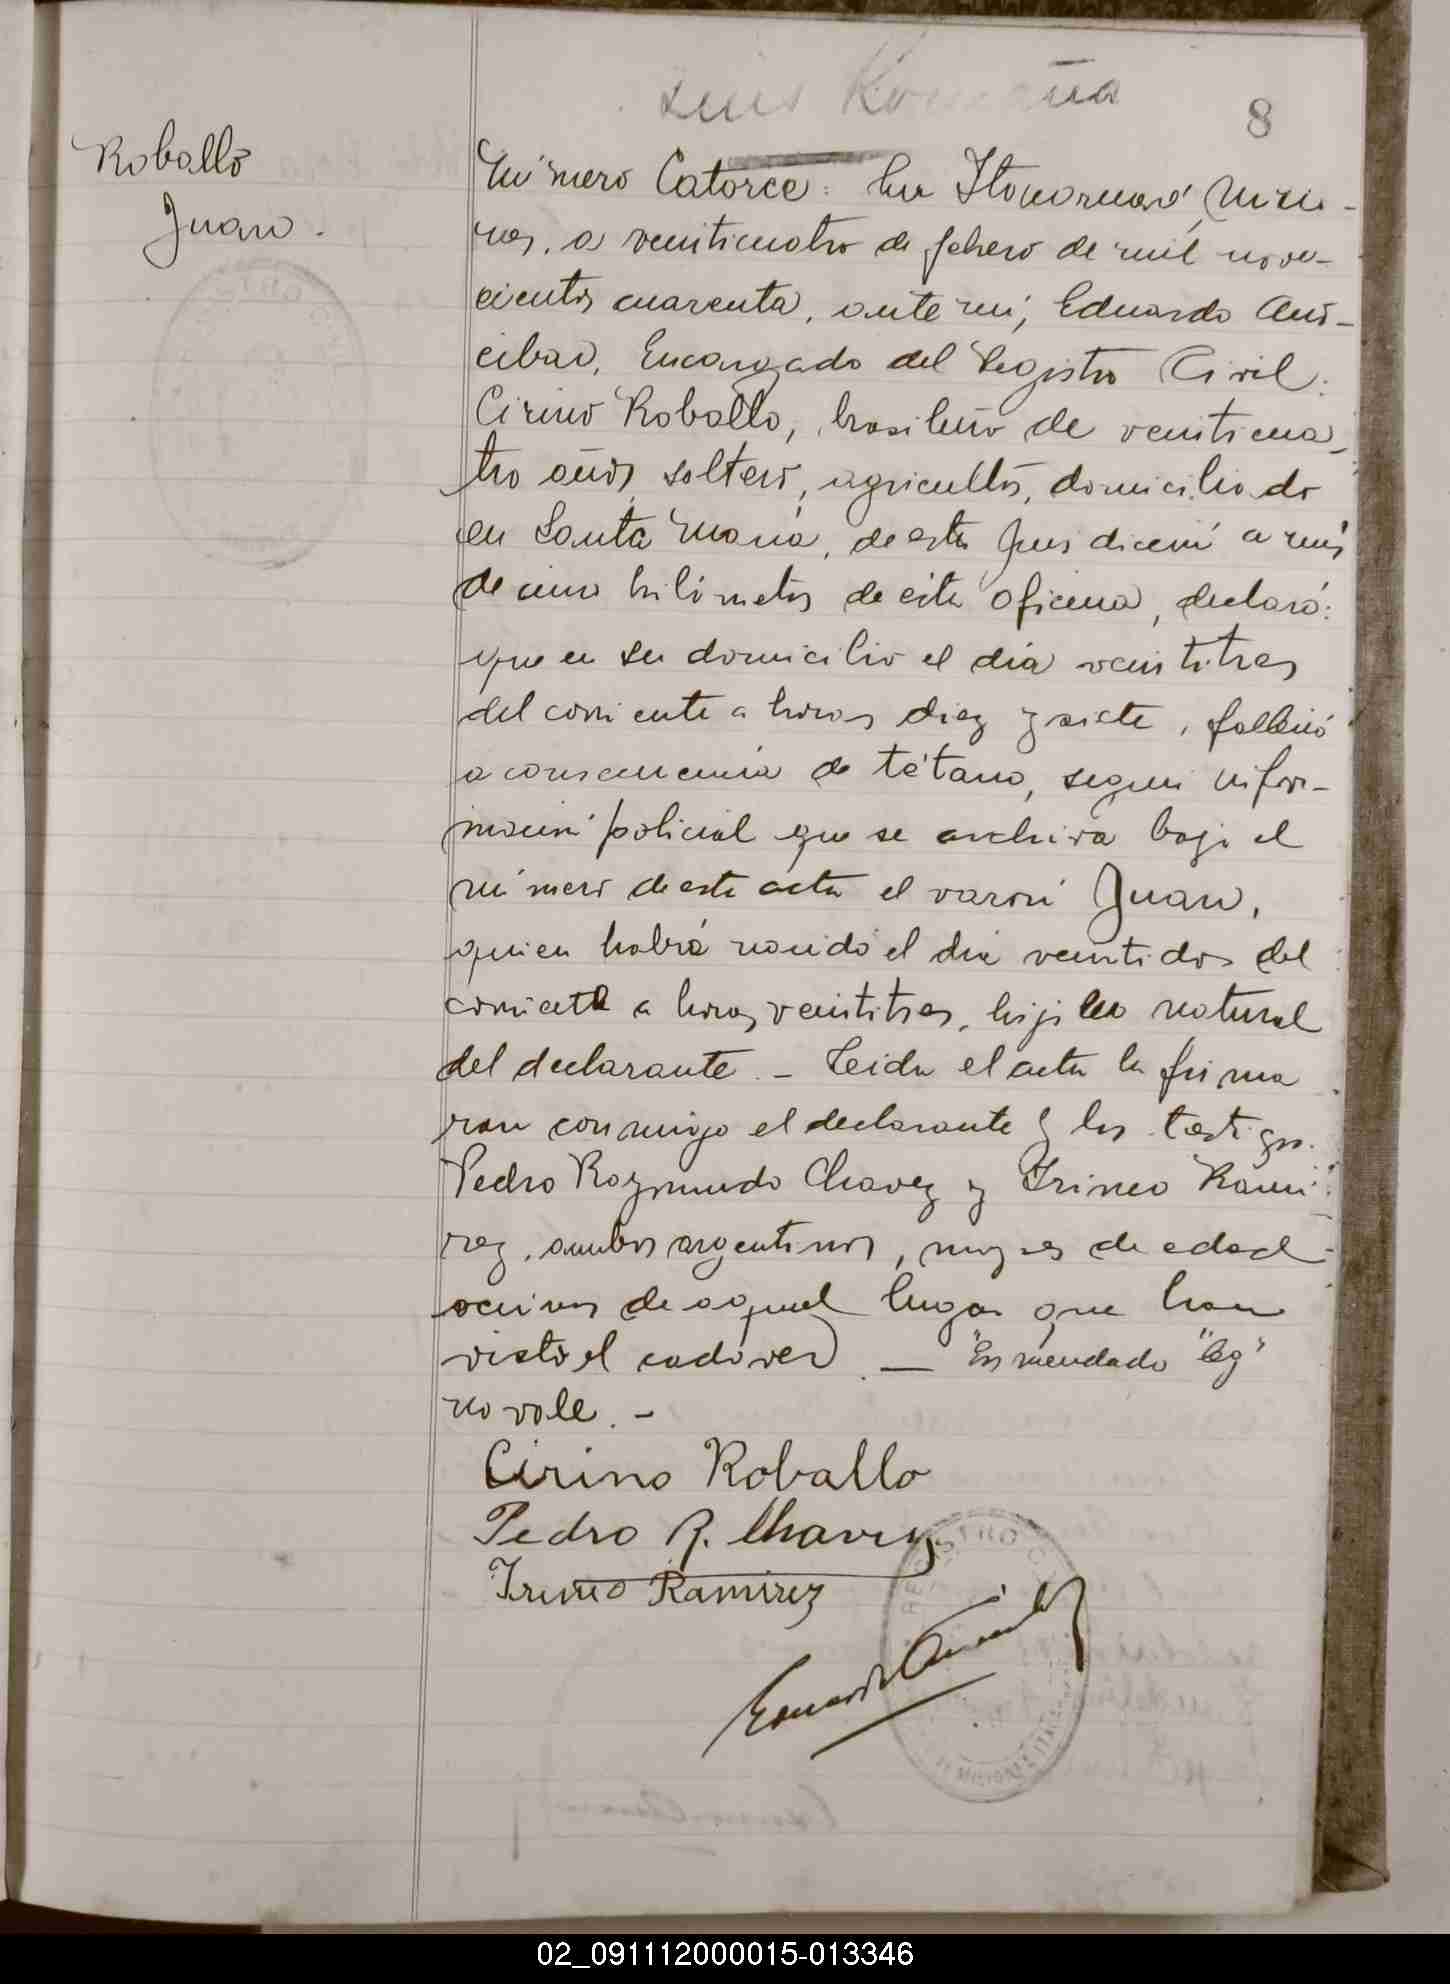 8
Roballo
Juan.
Número Catorce: En Itacaruaré, Misio-
nes, a veinticuatro de febrero de mil nove-
cientos cuarenta, ante mí, Eduardo
Encargado del Registro Civil:
Cirino Roballo, brasileño de veinticua-
tro años, soltero, agricultor, domiciliado
en Santa María, de esta jurisdicción a más
de cinco kilómetros de esta oficina, declaró:
que en su domicilio el día veintitres
del corriente a horas diez y siete, falleció
a consecuencia de tétano, según infor-
mación policial que se archiva bajo el
número de este acta el varón Juan,
quien había nacido el día veintidos del
corriente a horas veintitres, hijo natural
del declarante. - Leida el acta la firma
ron conmigo el declarante y los testigos.
Pedro Raymundo Chavez y Irineo Rami
rez, ambos argentinos, mayores de edad
vecinos de aquel lugar que han
visto el cadáver. — "Enmendado"
no vale. -
Cirino Roballo
Pedro R. Chavez
Irineo Ramirez
REGISTRO
02_091112000015-013346